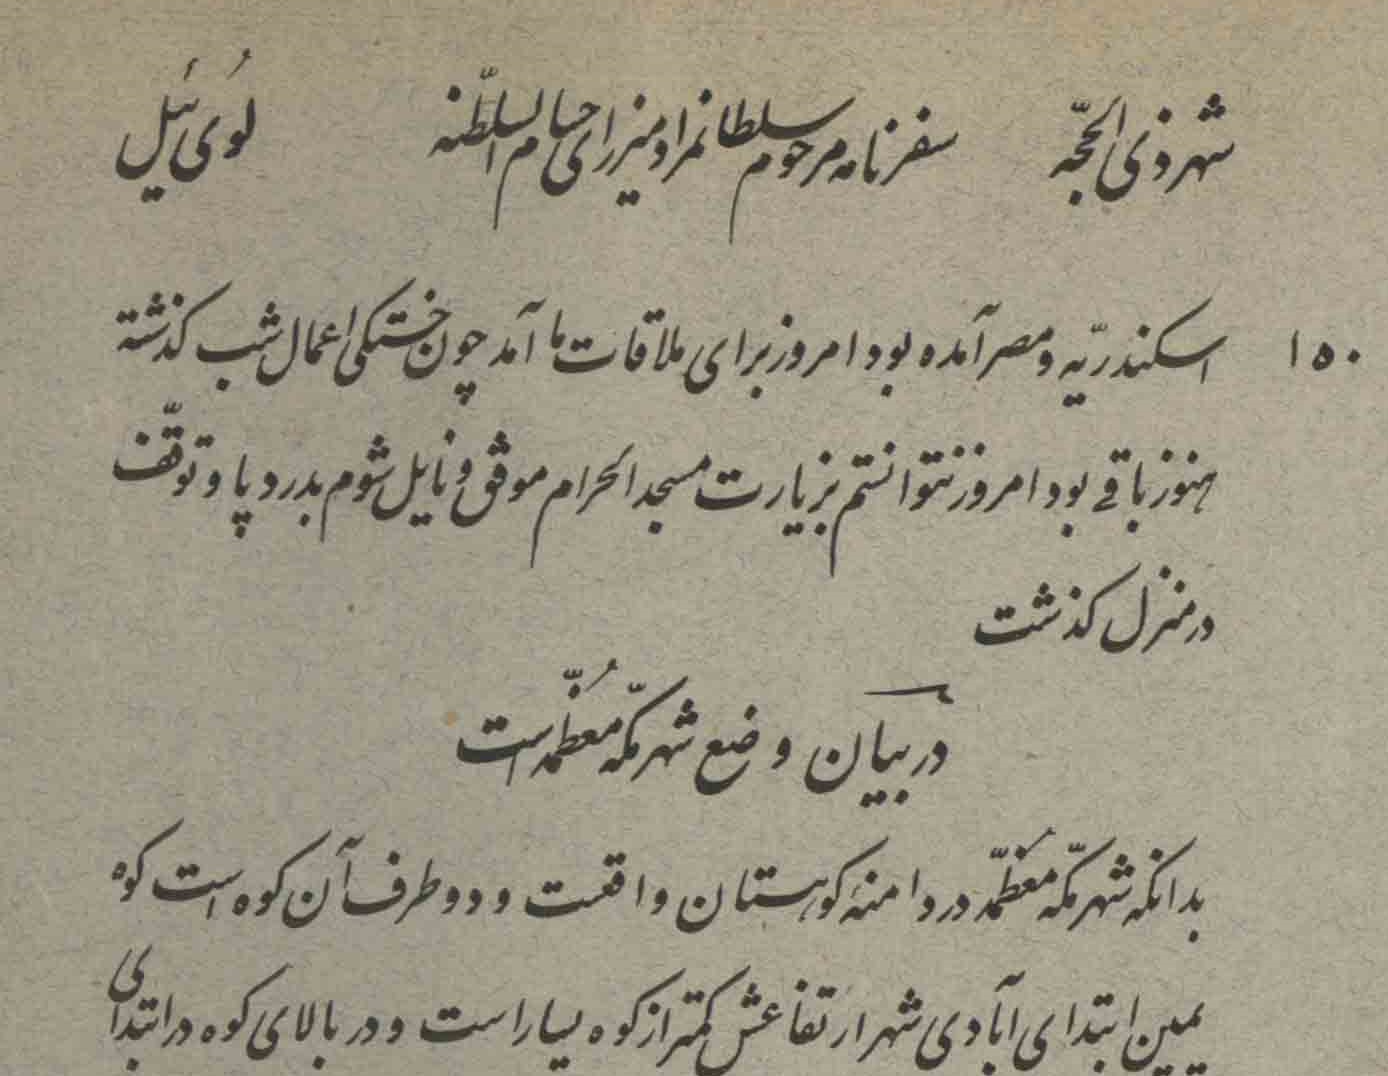 شهر ذی الحجّه سفرنامه مرحوم سلطانمراد میرزای حسام السلطّنه لُوی ئیل
۱۵۰
اسکندریّه و مصر آمده بود امروز برای ملاقات ما آمد چون خستکی اعمال شب کذشته
هنوز باقے بود امروز نتوانستم بزیارت مسجد الحرام موفق و نایل شوم بدرد پا و توقّف
در منزل کذشت
در بیان وضع شهر مکّه مُعظّمه است
بدانکه شهر مکّه معَظّمه در دامنهٔ کوهستان واقعست و دو طرف آن کوه است کوه
یمین ابتدای آبادی شهر ارتفاعش کمتر از کوه یسار است و در بالای کوه در ابتدای